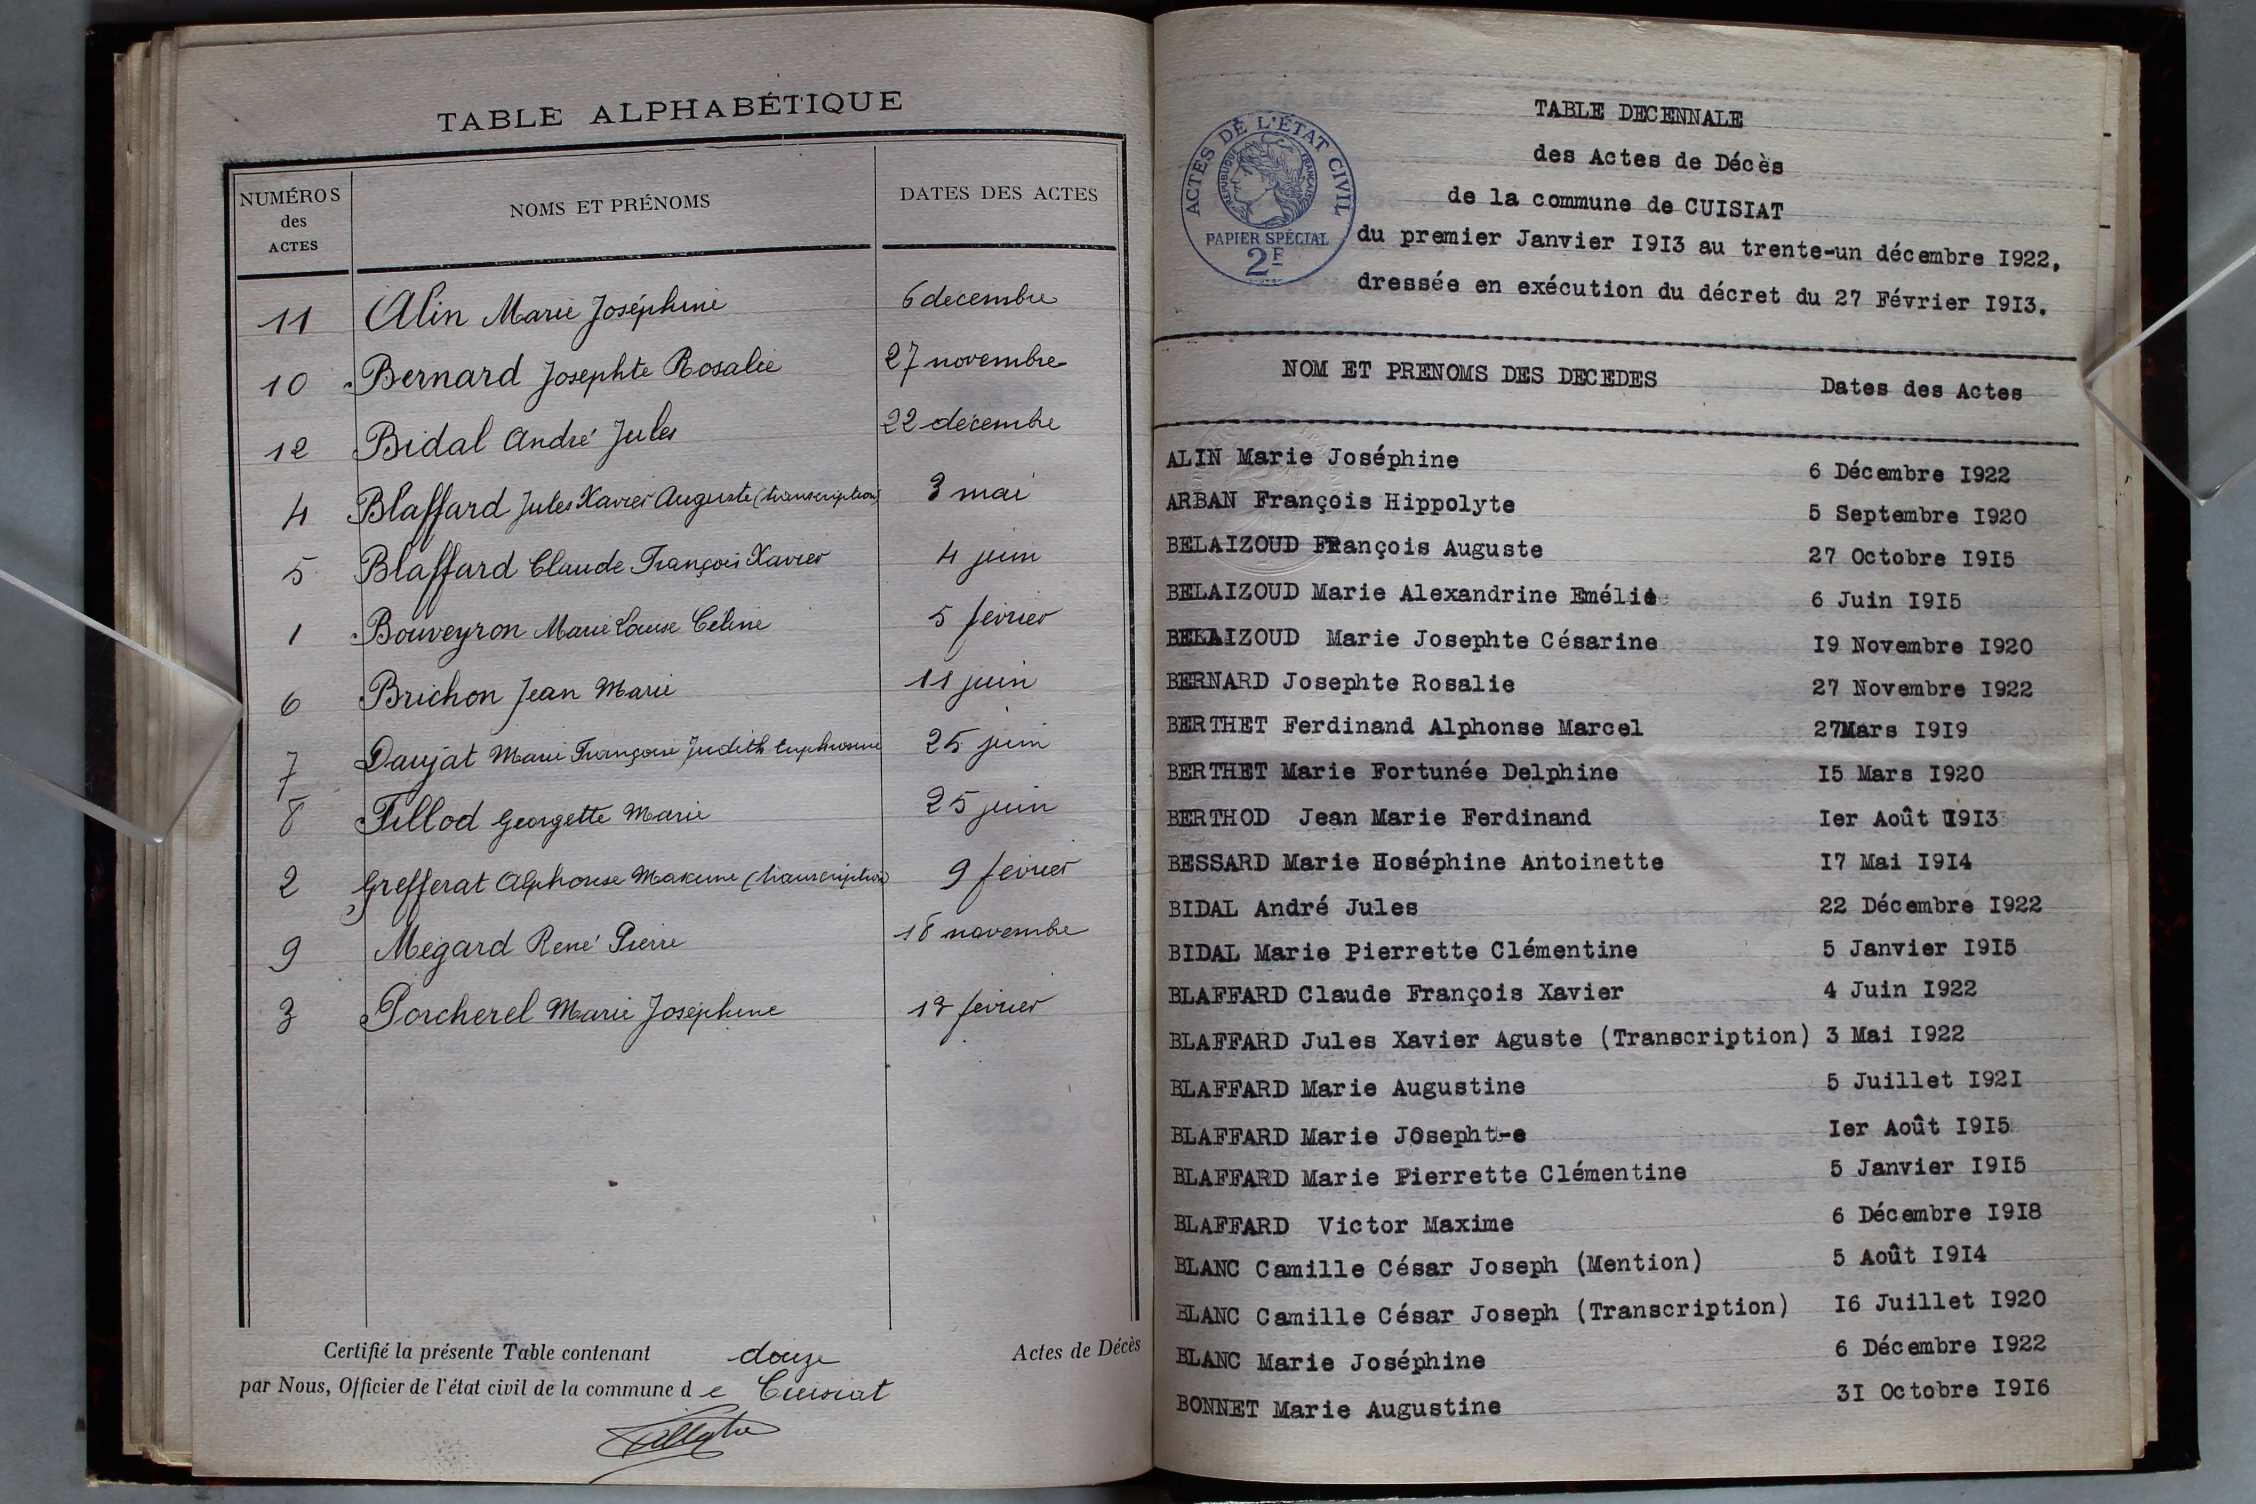 TABLE ALPHABÉTIQUE
NUMÉROS des ACTES NOMS ET PRÉNOMS DATES DES ACTES
11 Alin Marie Joséphine 6 décembre
10 Bernard Josephte Rosalie 27 novembre
12 Bidal André Jules 22 décembre
4 Blaffard Jules Xavier Auguste (transcription) 3 mai
5 Blaffard Claude François Xavier 4 juin
1 Bouveyron Marie Louise Céline 5 février
6 Brichon Jean Marie 11 juin
7 Daujat Marie Françoise Judith Euphrosine 25 juin
8 Fillod Georgette Marie 25 juin
2 Grefferat Alphonse Maxime (transcription) 9 février
9 Mégard René Pierre 18 novembre
3 Porcherel Marie Joséphine 13 février
Certifié la présente Table contenant douze Actes de Décès
par Nous, Officier de l'état civil de la commune de Cuisiat
ACTES DE L'ÉTAT CIVIL
RÉPUBLIQUE FRANÇAISE
PAPIER SPÉCIAL
2F
TABLE DECENNALE
des Actes de Décès
de la commune de CUISIAT
du premier Janvier I9I3 au trente-un décembre I922,
dressée en exécution du décret du 27 Février I9I3.
NOM ET PRENOMS DES DECEDES Dates des Actes
ALIN Marie Joséphine 6 Décembre I922
ARBAN François Hippolyte 5 Septembre I920
BELAIZOUD François Auguste 27 Octobre I9I5
BELAIZOUD Marie Alexandrine Emélie 6 Juin I9I5
BELAIZOUD Marie Josephte Césarine I9 Novembre I920
BERNARD Josephte Rosalie 27 Novembre I922
BERTHET Ferdinand Alphonse Marcel 27Mars I9I9
BERTHET Marie Fortunée Delphine I5 Mars I920
BERTHOD Jean Marie Ferdinand Ier Août I9I3
BESSARD Marie Hoséphine Antoinette I7 Mai I9I4
BIDAL André Jules 22 Décembre I922
BIDAL Marie Pierrette Clémentine 5 Janvier I9I5
BLAFFARD Claude François Xavier 4 Juin I922
BLAFFARD Jules Xavier Aguste (Transcription) 3 Mai I922
BLAFFARD Marie Augustine 5 Juillet I92I
BLAFFARD Marie JOsepht-e Ier Août I9I5
BLAFFARD Marie Pierrette Clémentine 5 Janvier I9I5
BLAFFARD Victor Maxime 6 Décembre I9I8
BLANC Camille César Joseph (Mention) 5 Août I9I4
BLANC Camille César Joseph (Transcription) I6 Juillet I920
BLANC Marie Joséphine 6 Décembre I922
BONNET Marie Augustine 3I Octobre I9I6